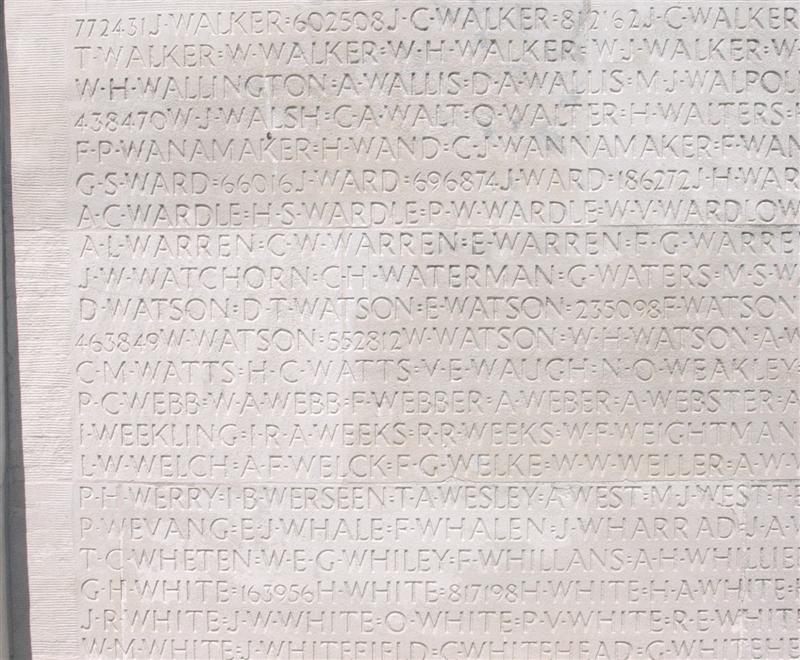 772431 J·WALKER=602508 J·C·WALKER=812162 J·C·WALKER
T·WALKER=W·WALKER=W·H·WALKER=W·J·WALKER=W·
W·H·WALLINGTON=A·WALLIS=D·A·WALLIS=M·J·WALPOL
438470 W·J·WALSH=C·A·WALT=O·WALTER=H·WALTERS=
F·P·WANAMAKER=H·WAND=C·J·WANNAMAKER=F·WAN
G·S·WARD=66016 J·WARD=696874 J·WARD=186272 J·H·WAR
A·C·WARDLE=H·S·WARDLE=P·W·WARDLE=W·V·WARDLOW
A·L·WARREN=C·W·WARREN=E·WARREN=F·G·WARRE
J·W·WATCHORN=C·H·WATERMAN=G·WATERS=M·S·W
D·WATSON=D·T·WATSON=E·WATSON=235098 F·WATSON
463849 W·WATSON=552812 W·WATSON=W·H·WATSON=A·W
C·M·WATTS=H·C·WATTS=V·E·WAUGH=N·O·WEAKLEY
P·C·WEBB=W·A·WEBB=F·WEBBER=A·WEBER=A·WEBSTER=A
I·WEEKLING=I·R·A·WEEKS=R·R·WEEKS=W·F·WEIGHTMAN
L·W·WELCH=A·F·WELCK=F·G·WELKE=W·W·WELLER=A·W·
P·H·WERRY=I·B·WERSEEN=T·A·WESLEY=A·WEST=M·J·WEST=T·
P·WEVANG=E·J·WHALE=F·WHALEN=J·WHARRAD=J·A·
T·C·WHETEN=W·E·G·WHILEY=F·WHILLANS=A·H·WHILLIE
G·H·WHITE=163956 H·WHITE=817198 H·WHITE=H·A·WHITE=
J·R·WHITE=J·W·WHITE=O·WHITE=P·V·WHITE=R·E·WHITE
W·M·WHITE=J·WHITEFIELD=C·WHITEHEAD=G·WHITEHE